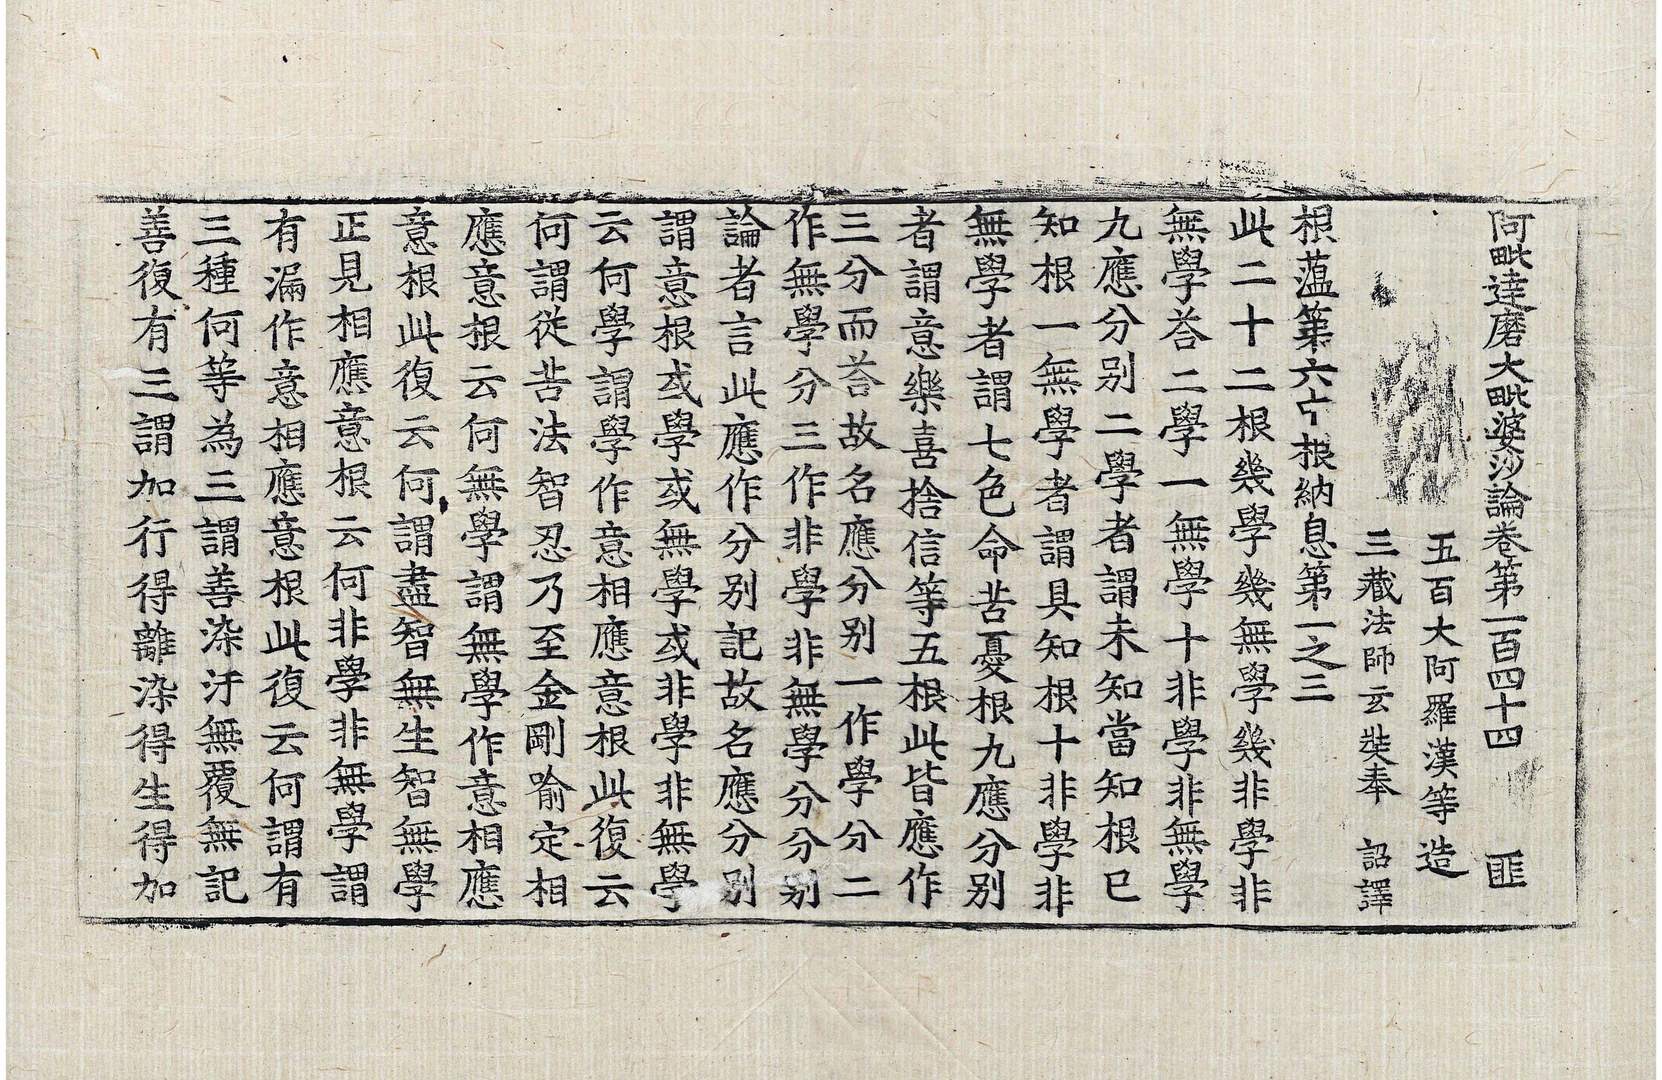 阿毗達磨大毗婆沙論卷第一百四十四 匪
五百大阿羅漢等造
三藏法師玄奘奉 詔譯
根蘊第六中根納息第一之三
此二十二根幾學幾無學幾非學非
無學荅二學一無學十非學非無學
九應分别二學者謂未知當知根已
知根一無學者謂具知根十非學非
無學者謂七色命苦憂根九應分别
者謂意樂喜捨信等五根此皆應作
三分而荅故名應分别一作學分二
作無學分三作非學非無學分分别
論者言此應作分别記故名應分别
謂意根或學或無學或非學非無學
云何學謂學作意相應意根此復云
何謂從苦法智忍乃至金剛喻定相
應意根云何無學謂無學作意相應
意根此復云何謂盡智無生智無學
正見相應意根云何非學非無學謂
有漏作意相應意根此復云何謂有
三種何等為三謂善染汙無覆無記
善復有三謂加行得離染得生得加